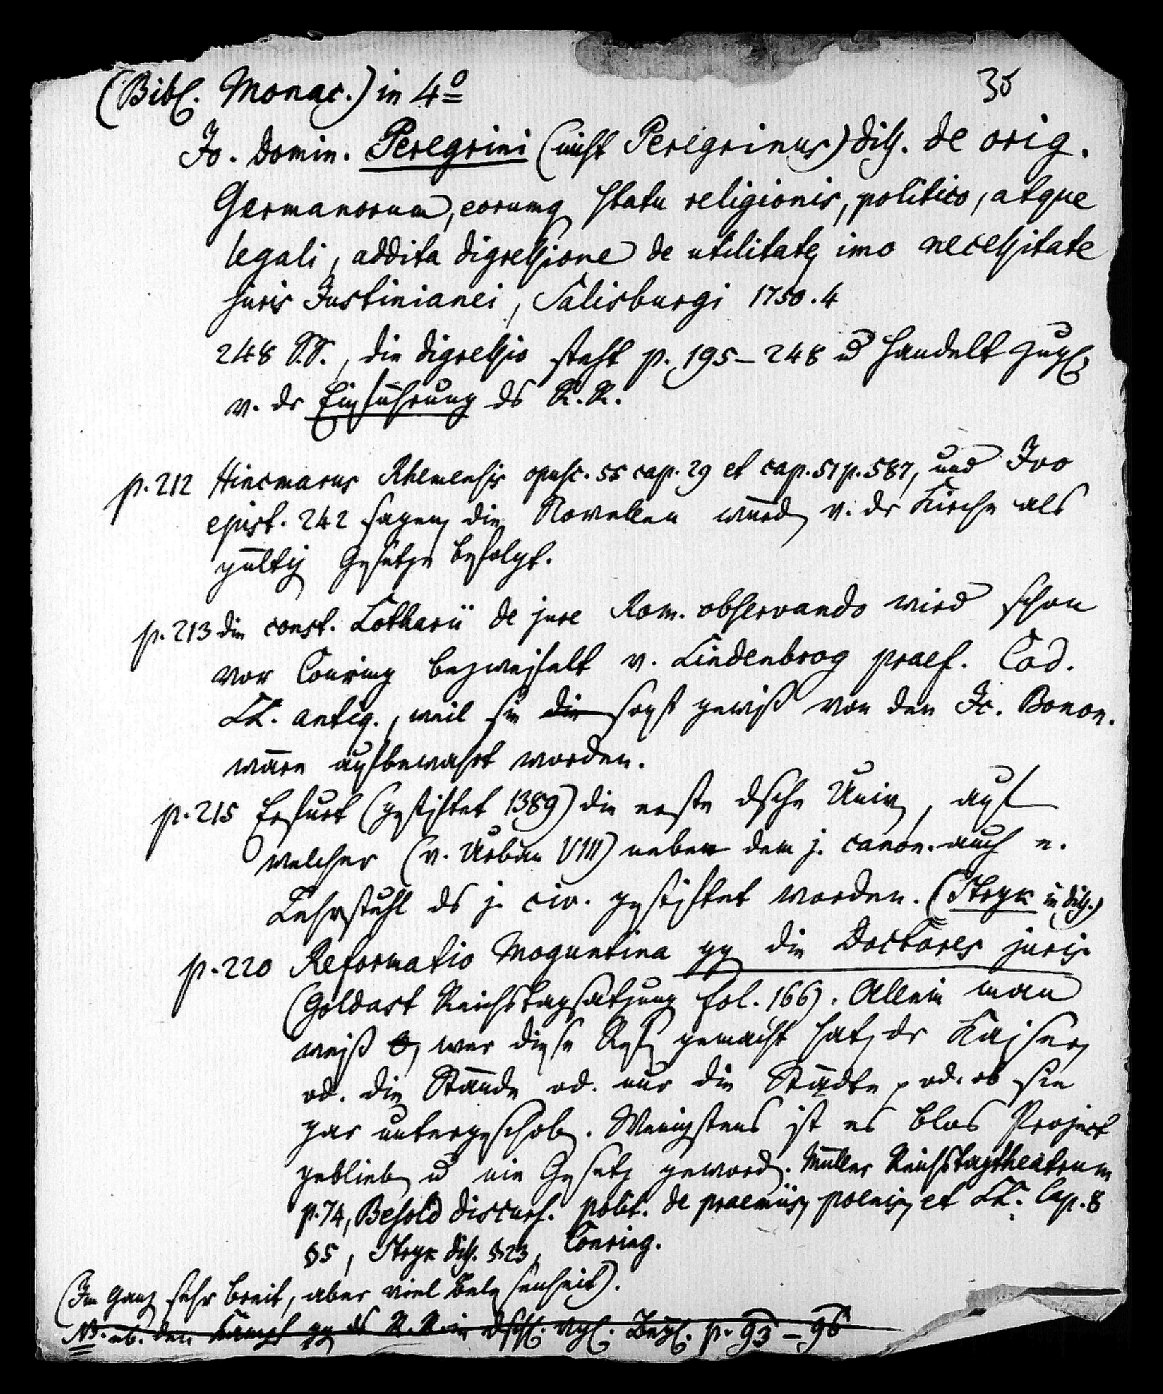 (Bibl. Monac.) in 4º 35
Jo. Domin. Peregrini (nicht Peregrinus) diss. de orig.
Germanorum, eorumq statu religionis, politico, atque
legali, addita digressione de utilitate, imo necessitate
juris Justinianei, Salisburgi 1750. 4
248 S.S., die digressio steht p. 195–248 u handelt zugl.
v. dr Einführung ds R. R.
p. 212 Hincmarus Rhemensis opusc. 55 cap. 29 et cap. 51 p. 587, und Ivo
epist. 242 sagen, die Novellen würd v. dr Kirche als
gültig Gesetze befolgt.
p. 213 die const. Lotharii de jure Rom. observando wird schon
vor Conring bezweifelt v. Lindenbrog praef. Cod.
LL. antiq., weil sie die sonst gewiß von den Jc. Bonon.
wäre aufbewahrt worden.
p. 215 Erfurt (gestiftet 1389) die erste dsche Univ, auf
welcher (v. Urban VIII) neben dem j. canon. auch e.
Lehrstuhl ds j. civ. gestiftet worden. (Stryk in diss.)
p. 220 Reformatio Moguntina gg die Doctores juris
(Goldast Reichstagsatzung fol. 166). Allein man
weiß wer diese Ref gemacht hat, dr Kaiser,
od. die Stände od. nur die Städte, od. ob sie
gar untergeschob. Wenigstens ist es blos Project
geblieb u nie Gesetz geword. Müller Reichstagstheatrum
p. 74, Besold discurs. polit. de praemiis, poenis, et LL. Cap. 8
§ 5, Stryk diss. § 23, Conring.
(Im Ganz sehr breit, aber viel Belesenheit).
NB. üb. den Kampf gg ds R. R. in dschl. vgl. p. 93–96